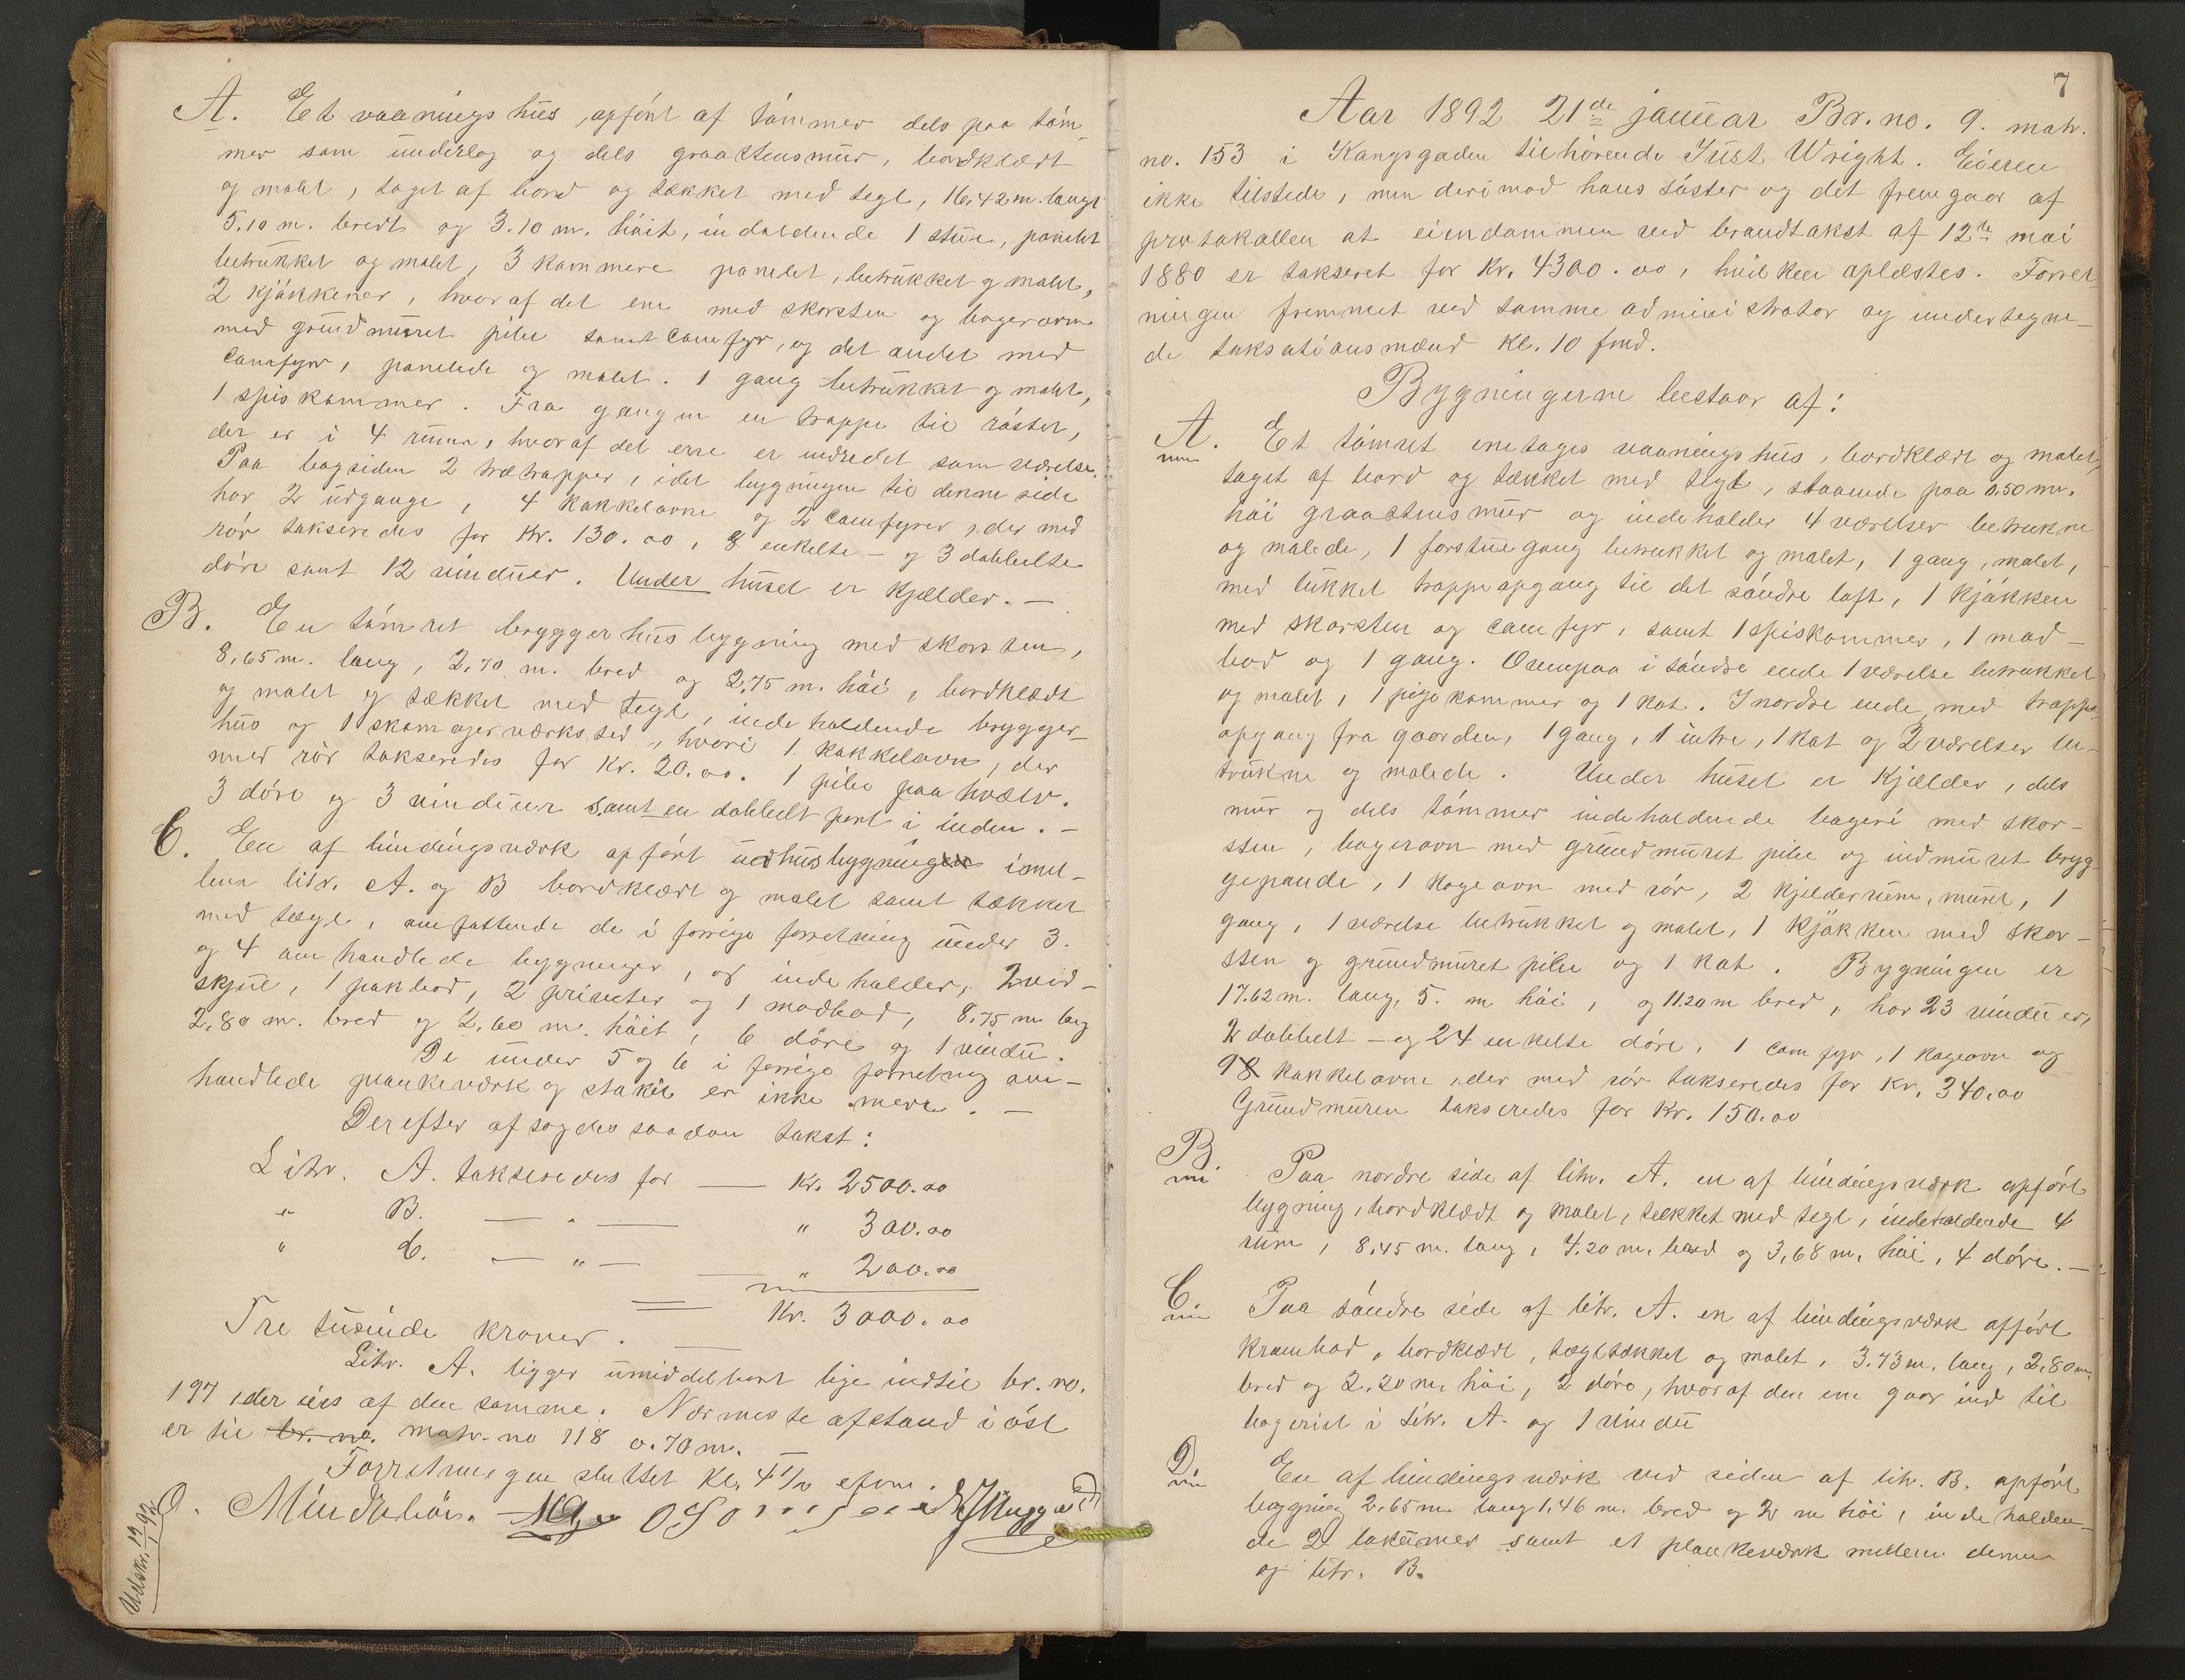 A. Et vaaningshus, opført af tømmer dels paa tøm-
mer som underlag og dels graastensmur, bordklædt
og malet, taget af bord og tækket med tegl, 16,42 m. langt
5.10 m. bredt og 3.10 m. høit, indeholdende 1 stue, panelet
betrukket og malet, 3 kammere panelet, betrukket og malet,
2 kjøkkener, hvoraf det ene med skorsten og bagerovn
med grundmuret pibe samt comfyr, og det andet med
comfyr, panelede og malet. 1 gang betrukket og malet,
1 spiskammer. Fra gangen en trappe til røstet,
der er i 4 rum, hvoraf det ene er indredet som værelse.
Paa bagsiden 2 trætrapper, idet bygningen til denne side
har 2 udgange, 4 kakkelovne og 2 comfyrer, der med
rør takseredes for Kr. 130.00, 8 enkelte- og 3 dobbelte
døre samt 12 vinduer. Under huset er kjælder. —
B. En tømret bryggerhusbygning med skorsten,
8,65 m. lang, 2,70 m. bred og 2,75 m. høi, bordklædt
og malet og tækket med tegl, indeholdende brygger-
hus og 1 skomagerværksted, hvori 1 kakkelovn, der
med rør takseredes for Kr. 20.00. 1 pibe paa hvælv.
3 døre og 3 vinduer samt en dobbelt port i inden. —
C. En af bindingsværk opført udhusbygning imel-
lem litr. A. og B bordklædt og malet samt tækket
med tægl, omfattende de i forrige forretning under 3.
og 4 omhandlede bygninger, og indeholder, 2 ved-
skjul, 1 pakbod, 2 priveter og 1 madbod, 8,75 m lang
2,80 m. bred og 2,60 m. høit, 6 døre og 1 vindu.
De under 5 og 6 i forrige forretning om-
handlede plankeværk og stakit er ikke mere. —
Derefter afsagdes saadan takst:
Litr. A. takseredes for — Kr. 2500.00
" B. — " — " 300.00
" C. — " — " 200.00
Kr. 3000.00
Tre tusinde kroner. —
Litr. A. ligger umiddelbart lige indtil br. no.
197 der eies af den samme. Nærmeste afstand i øst
er til br. no. matr. no 118 0.70 m.
Forretningen sluttet Kl. 4 1/2 efm.
O.
Udskr. 19/1 92
7
Aar 1892 21de januar Br. no. 9. matr.
no. 153 i Kongsgaden tilhørende Just Wright. Eieren
ikke tilstede, men derimod hans søster og det fremgaar af
protokollen at eiendommen ved brandtakst af 12te mai
1880 er takseret for Kr. 4300.00, hvilken oplæstes. Forret
ningen fremmet ved samme administrator og undertegne-
de taksationsmænd Kl. 10 fmd.
Bygningerne bestaar af:
A. Et tømret enetages vaaningshus, bordklædt og malet,
taget af bord og tækket med tegl, staaende paa 0,50 m.
høi graastensmur og indeholder 4 værelser betrukne
og malede, 1 forstuegang betrukket og malet, 1 gang, malet,
med lukket trappeopgang til det søndre loft, 1 kjøkken
med skorsten og comfyr, samt 1 spiskammer, 1 mad-
bod og 1 gang. Ovenpaa i søndre ende 1 værelse betrukket
og malet, 1 pigekammer og 1 kot. I nordre ende, med trappe-
opgang fra gaarden, 1 gang, 1 intre, 1 kot og 2 værelser be-
trukne og malede. Under huset er kjælder, dels
mur og dels tømmer indeholdende bageri med skor-
sten, bagerovn med grundmuret pibe og indmuret bryg-
gepande, 1 kogeovn med rør, 2 kjelderrum, muret, 1
gang, 1 værelse betrukket og malet, 1 kjøkken med skor-
sten og grundmuret pibe og 1 kot. Bygningen er
17.62 m. lang, 5. m høi, og 11.20 m bred, har 23 vinduer,
2 dobbelt- og 24 enkelte døre, 1 comfyr, 1 kogeovn og
9 kakkelovne, der med rør takseredes for Kr. 340.00
Grundmuren takseredes for Kr. 150.00
B. Paa nordre side af litr. A. en af bindingsværk opført
bygning, bordklædt og malet, tækket med tegl, indeholdende 4
rum, 8,45 m. lang, 4.20 m. bred og 3,68 m. høi, 4 døre. —
C. Paa søndre side af litr. A. en af bindingsværk opført
Krambod, bordklædt, tægltækket og malet, 3.43 m. lang, 2,80 m.
bred og 2.20 m. høi, 2 døre, hvoraf den ene gaar ind til
bageriet i litr. A. og 1 vindu
D. En af bindingsværk ved siden af litr. B. opført
bygning 2.65 m. lang 1.46 m. bred og 2 m høi, indeholden-
de 2 lokumer samt et plankeværk mellem denne
og litr. B.